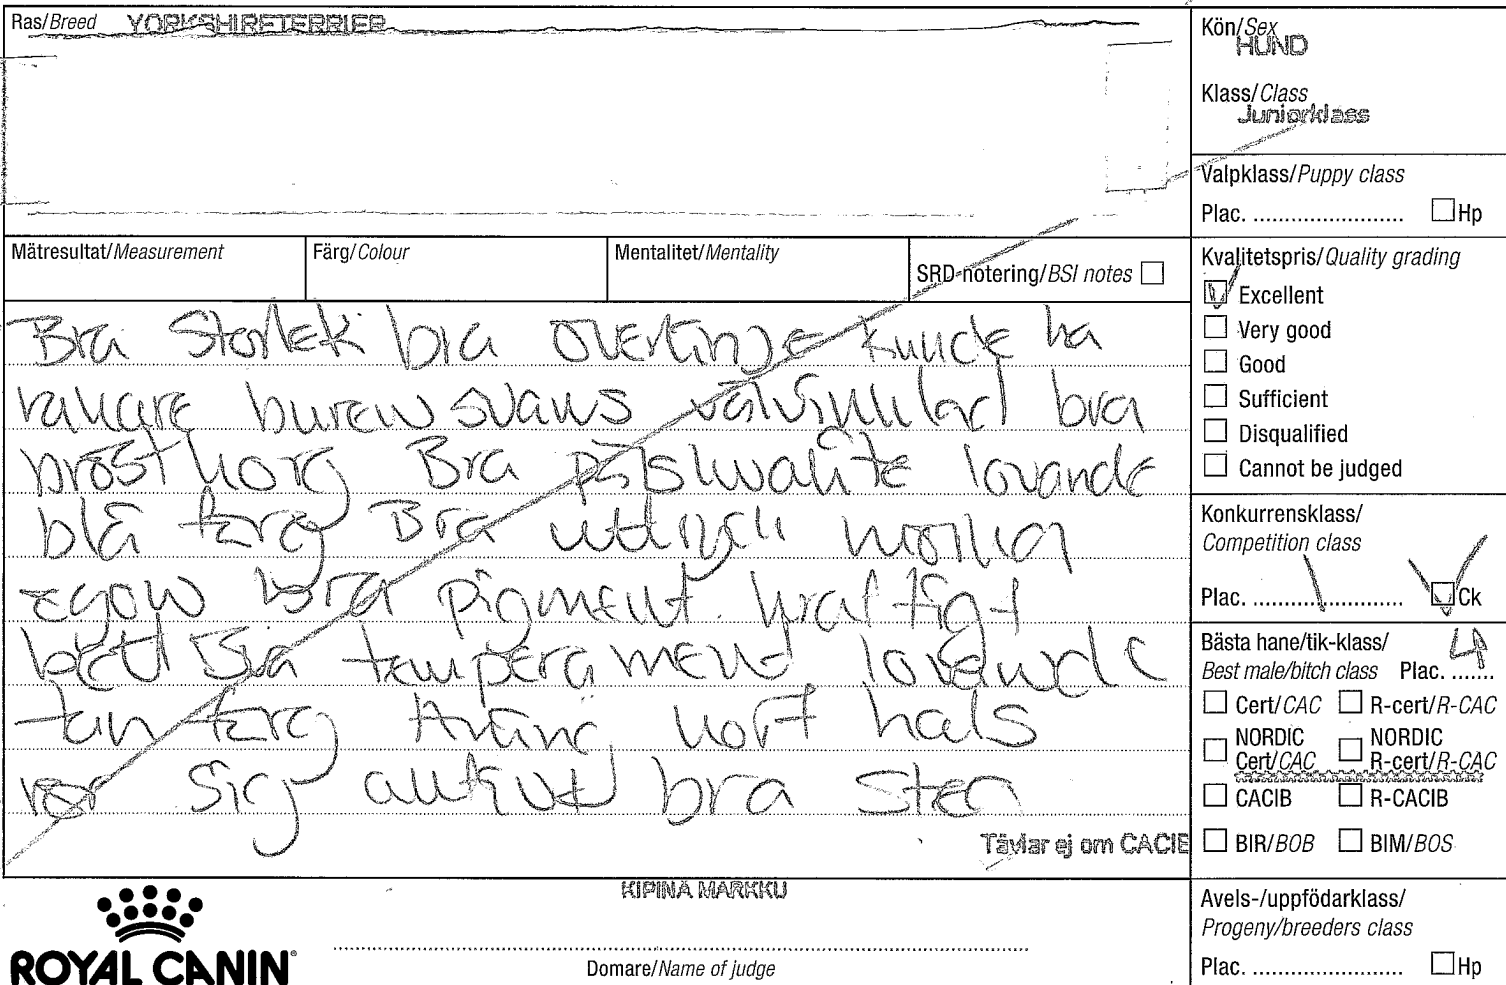 Ras/Breed YORKSHIRETERRIER
Kön/Sex
HUND
Klass/Class
Juniorklass
Valpklass/Puppy class
Plac. ........................ Hp
Mätresultat/Measurement Färg/Colour Mentalitet/Mentality SRD-notering/BSI notes
Kvalitetspris/Quality grading
Excellent
Very good
Good
Sufficient
Disqualified
Cannot be judged
Bra storlek bra överlinje kunde ha
rakare buren svans välvinklad bra
bröstkorg Bra pälskvalite lovande
blå färg Bra uttryck mörka
ögon bra pigment kraftigt
bett bra temperament lovande
tan färg Aning kort hals
rör sig aktivt bra steg
Tävlar ej om CACIB
Konkurrensklass/
Competition class
Plac. 1 Ck
Bästa hane/tik-klass/
Best male/bitch class Plac. 4
Cert/CAC R-cert/R-CAC
NORDIC Cert/CAC NORDIC R-cert/R-CAC
CACIB R-CACIB
BIR/BOB BIM/BOS
KIPINÄ MARKKU
ROYAL CANIN®
Domare/Name of judge
Avels-/uppfödarklass/
Progeny/breeders class
Plac. ........................ Hp